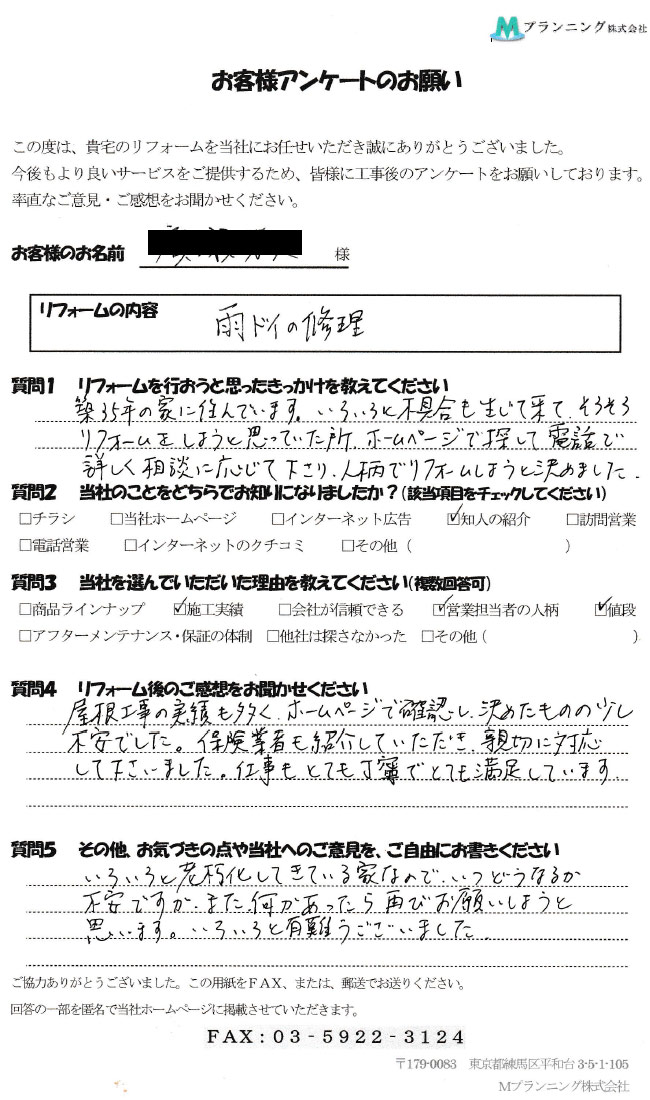 Mプランニング株式会社
お客様アンケートのお願い
この度は、貴宅のリフォームを当社にお任せいただき誠にありがとうございました。
今後もより良いサービスをご提供するため、皆様に工事後のアンケートをお願いしております。
率直なご意見・ご感想をお聞かせください。
お客様のお名前 様
リフォームの内容 雨ドイの修理
質問1 リフォームを行おうと思ったきっかけを教えてください
築35年の家に住んでいます。いろいろと不具合も生じて来て、そろそろ
リフォームをしようと思っていた所、ホームページで探して電話で
詳しく相談に応じて下さり、人柄でリフォームしようと決めました。
質問2 当社のことをどちらでお知りになりましたか？(該当項目をチェックしてください)
□チラシ □当社ホームページ □インターネット広告 ☑知人の紹介 □訪問営業
□電話営業 □インターネットのクチコミ □その他（ ）
質問3 当社を選んでいただいた理由を教えてください(複数回答可)
□商品ラインナップ ☑施工実績 □会社が信頼できる ☑営業担当者の人柄 ☑値段
□アフターメンテナンス・保証の体制 □他社は探さなかった □その他（ ）
質問4 リフォーム後のご感想をお聞かせください
屋根工事の実績も多く、ホームページで確認し、決めたものの少し
不安でした。保険業者も紹介していただき、親切に対応
して下さいました。仕事もとても丁寧でとても満足しています
質問5 その他、お気づきの点や当社へのご意見を、ご自由にお書きください
いろいろと老朽化してきている家なので、いつどうなるか
不安ですが、また何かあったら再びお願いしようと
思います。いろいろと有難うございました。
ご協力ありがとうございました。この用紙をFAX、または、郵送でお送りください。
回答の一部を匿名で当社ホームページに掲載させていただきます。
FAX:03-5922-3124
〒179-0083 東京都練馬区平和台3-5-1-105
Mプランニング株式会社